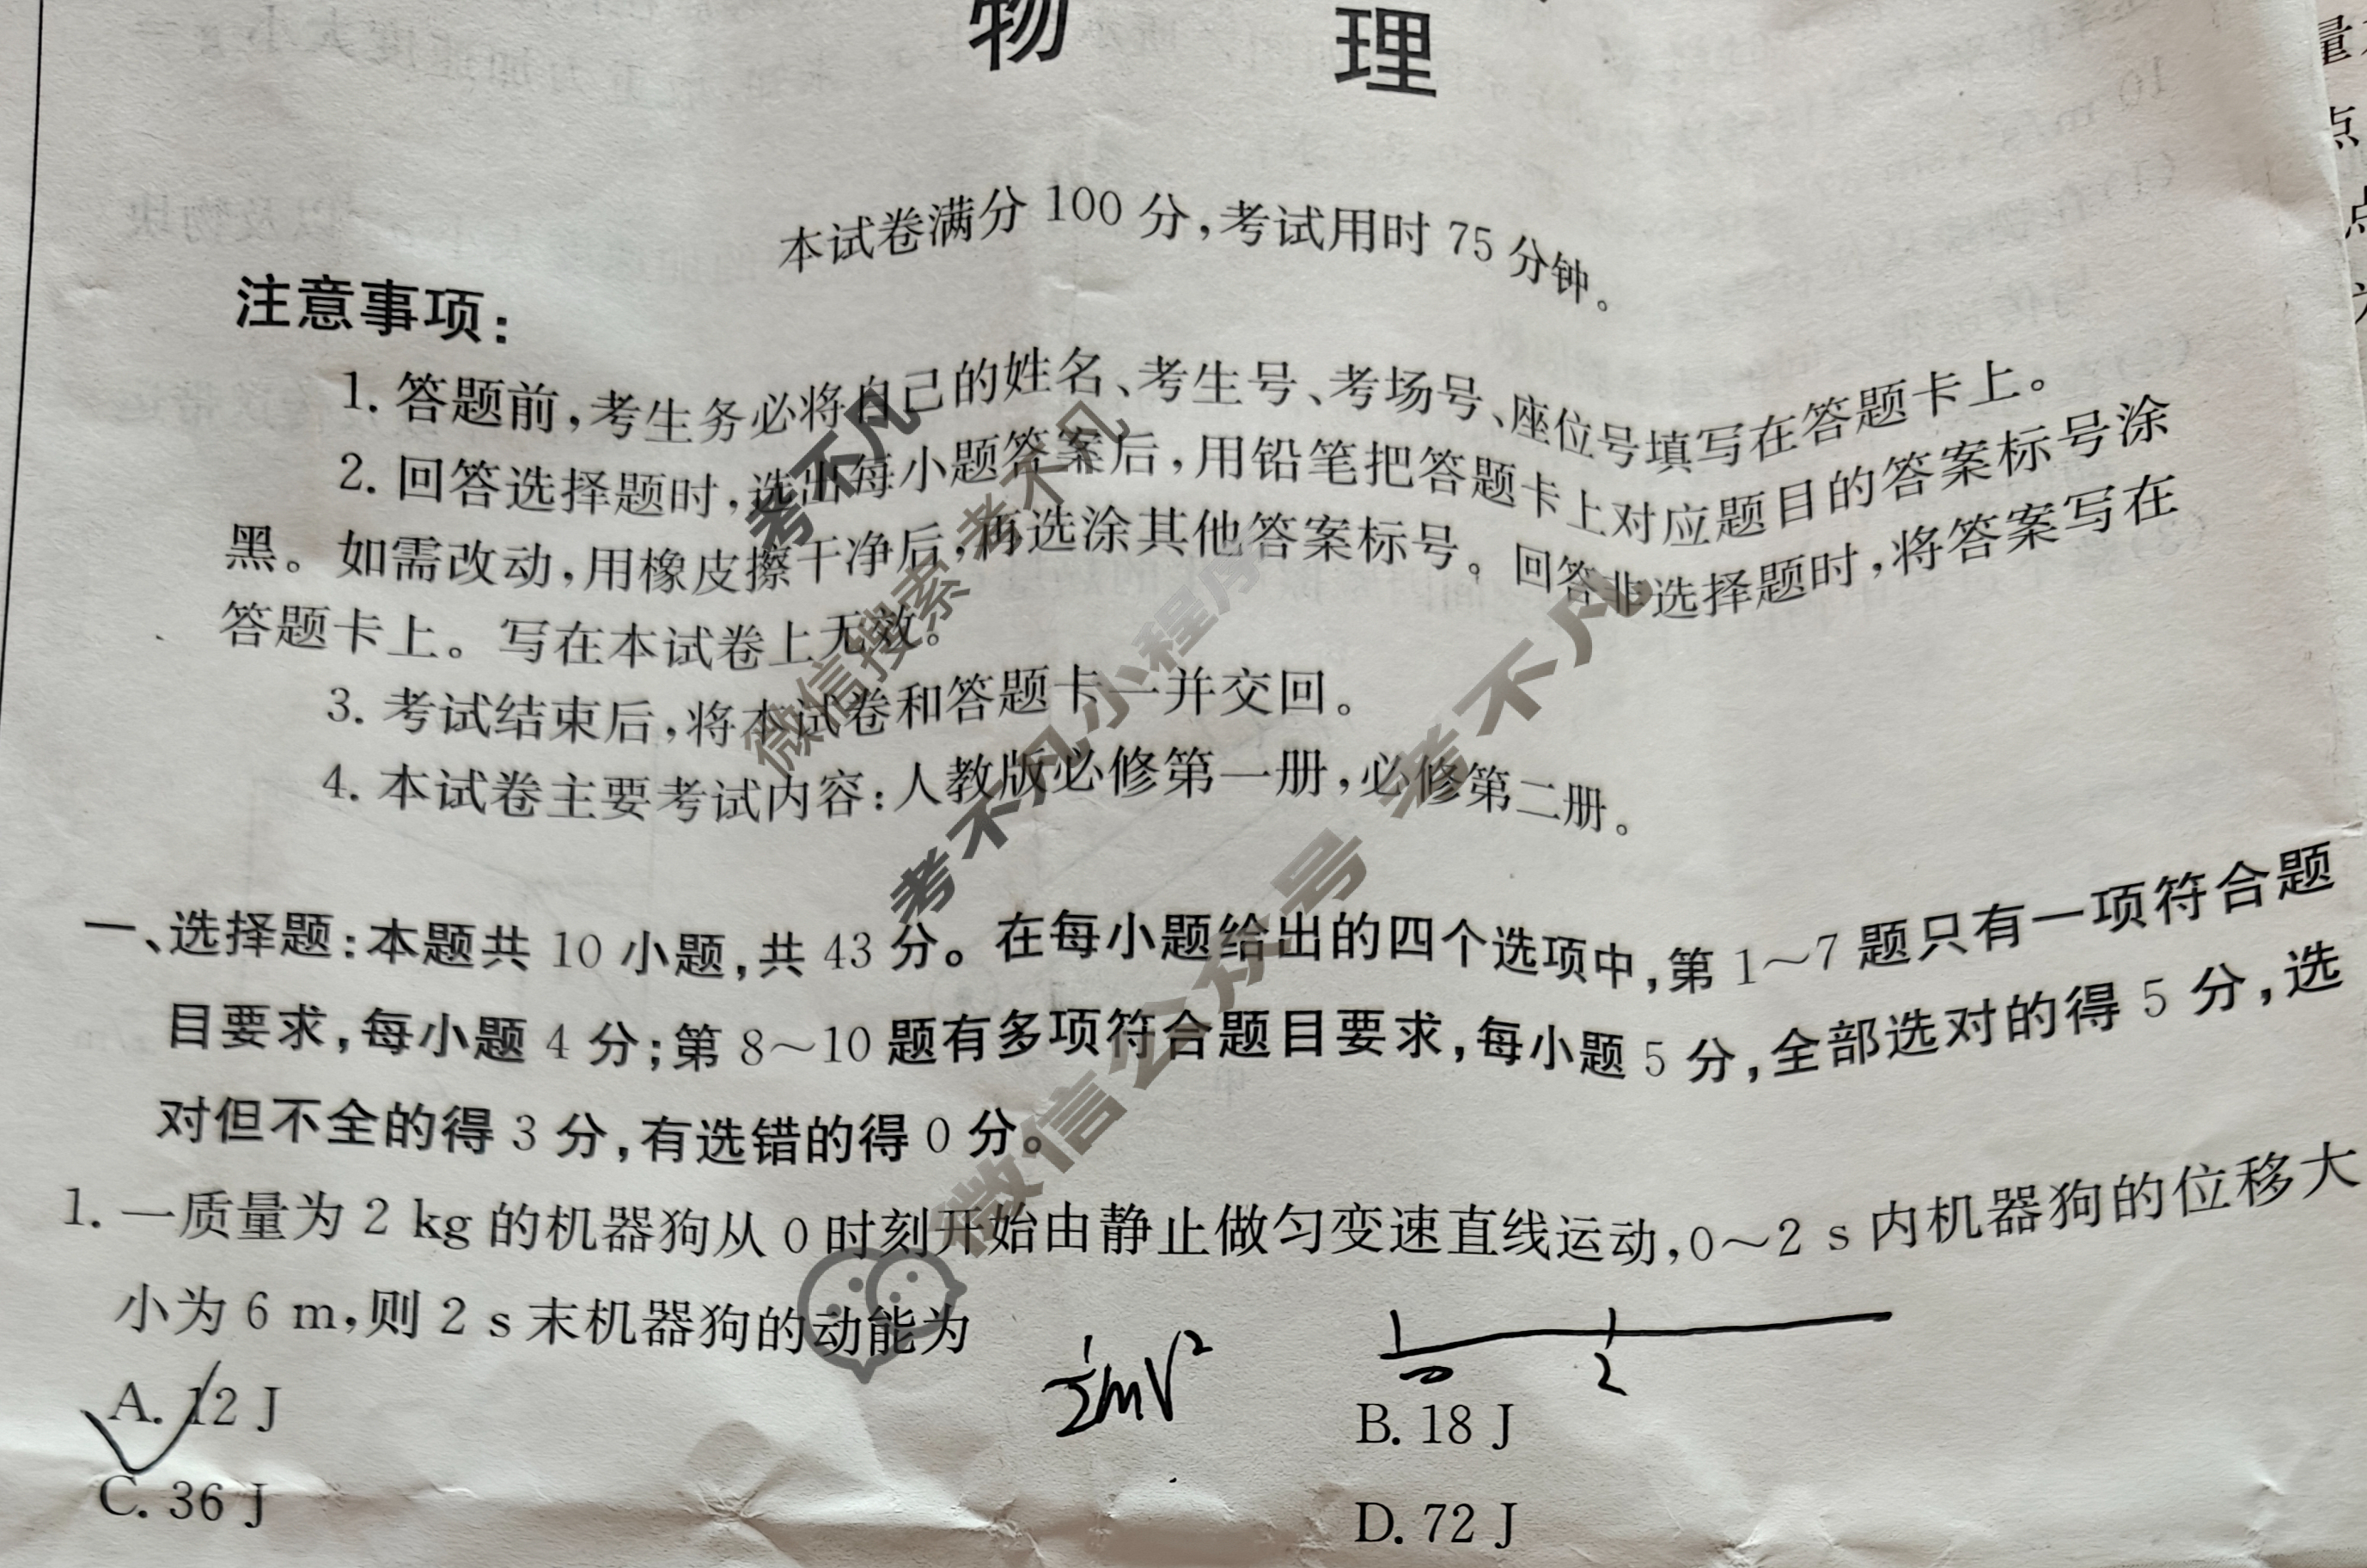 物 理
本试卷满分 100 分,考试用时 75 分钟。
注意事项:
1. 答题前,考生务必将自己的姓名、考生号、考场号、座位号填写在答题卡上。
2. 回答选择题时,选出每小题答案后,用铅笔把答题卡上对应题目的答案标号涂
黑。如需改动,用橡皮擦干净后,再选涂其他答案标号。回答非选择题时,将答案写在
答题卡上。写在本试卷上无效。
3. 考试结束后,将本试卷和答题卡一并交回。
4. 本试卷主要考试内容:人教版必修第一册,必修第二册。
一、选择题:本题共 10 小题,共 43 分。在每小题给出的四个选项中,第 1~7 题只有一项符合题
目要求,每小题 4 分;第 8~10 题有多项符合题目要求,每小题 5 分,全部选对的得 5 分,选
对但不全的得 3 分,有选错的得 0 分。
1. 一质量为 2 kg 的机器狗从 0 时刻开始由静止做匀变速直线运动,0~2 s 内机器狗的位移大
小为 6 m,则 2 s 末机器狗的动能为
½mV²
0 2
A. 12 J
B. 18 J
C. 36 J
D. 72 J
考不凡
微信搜索 考不凡
考不凡小程序
微信公众号 考不凡
量
点